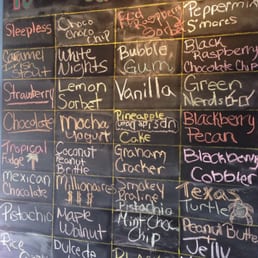 Sleepless
Choco
choco
chip
Red Raspberry
Sorbet
Peppermint
S'mores
Caramel
Stout
White
Nights
Bubble
Gum
Black
Raspberry
Chocolate Chip
Strawberry
Lemon
Sorbet
Vanilla
Green
Nerds
Chocolate
Macha
Yogurt
Pineapple
Cake
Blackberry
Pecan
Tropical
Fudge
Coconut
Peanut
Brittle
Graham
Cracker
Blackberry
Cobbler
Mexican
Chocolate
Millionaire
$$$
Smokey
Praline
Texas
Turtle
Pistachio
Maple
Walnut
Pistachio
Mint Choc
Chip
Peanut Butter
Jelly
Rice
Dulce de